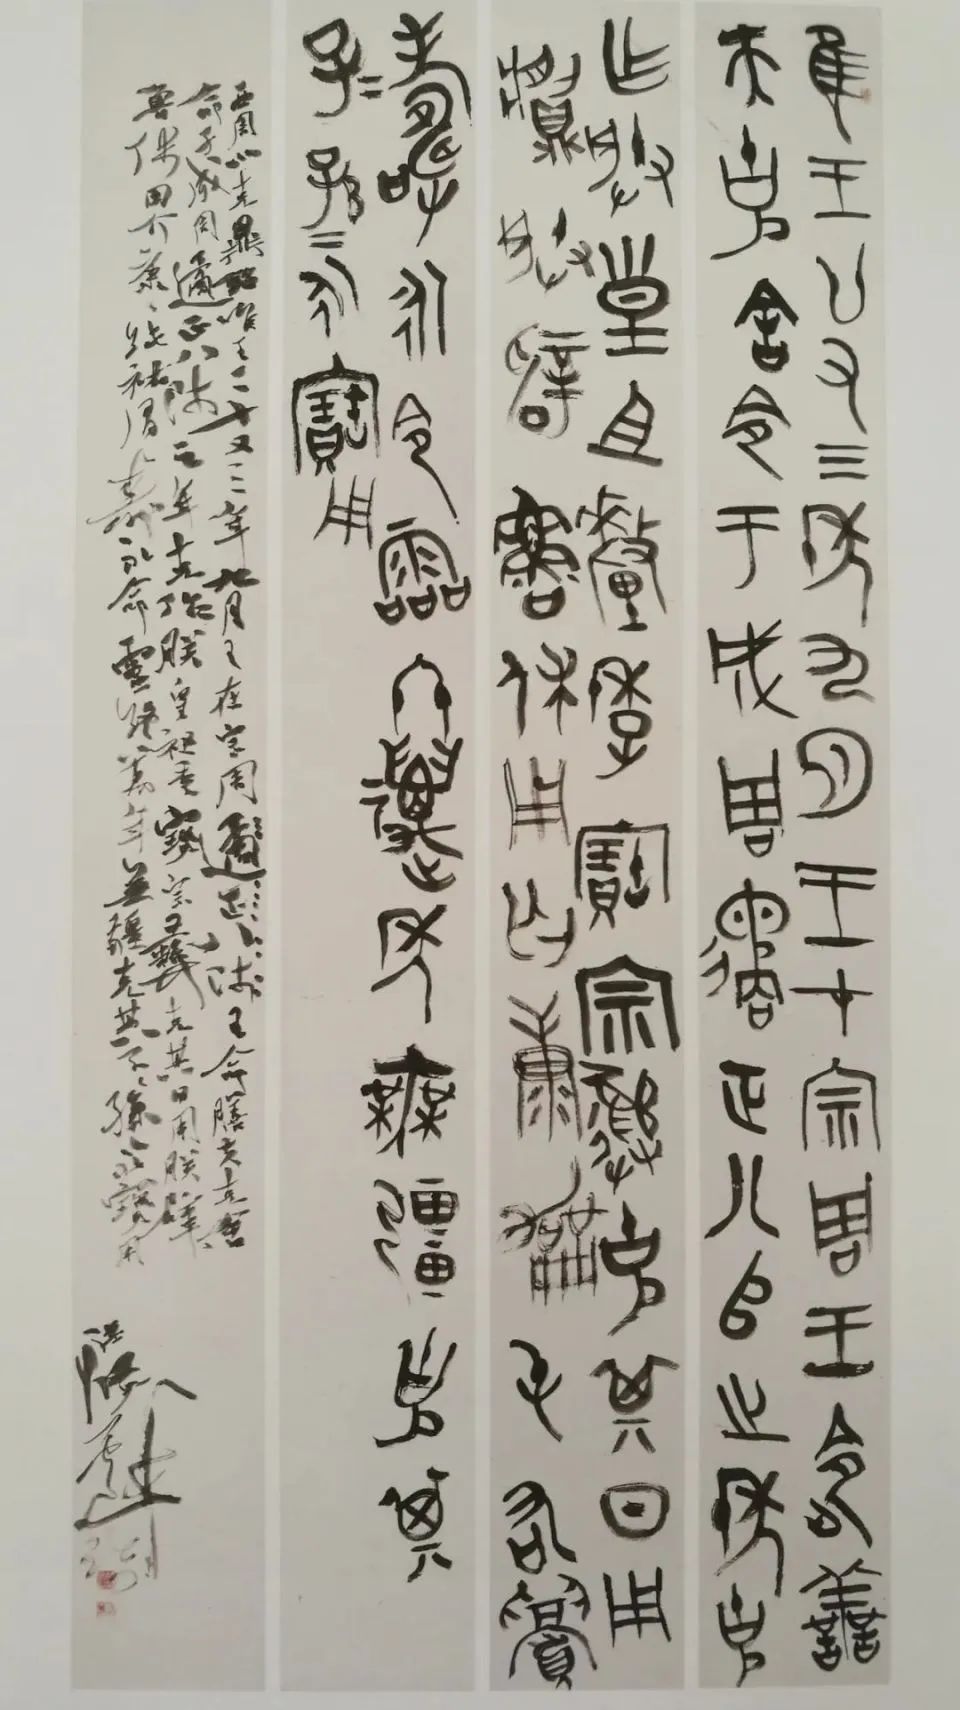 隹王廿又三年九月王才宗周王令善
夫克舍令于成周遹正八𠂤之年克
乍朕皇且釐季寶宗彝克其日用
朕辟魯休用匄康屯右眉
壽永令霝冬萬年無疆克其
子=孫=永寶用
西周小克鼎銘唯王二十又三年九月王在宗周遹正八師王命膳夫克舍
命于成周遹正八師之年克作朕皇祖季寶宗彝克其日用朕辟
魯休用匄康純祐眉壽永命靈終萬年無疆克其子子孫永寶用